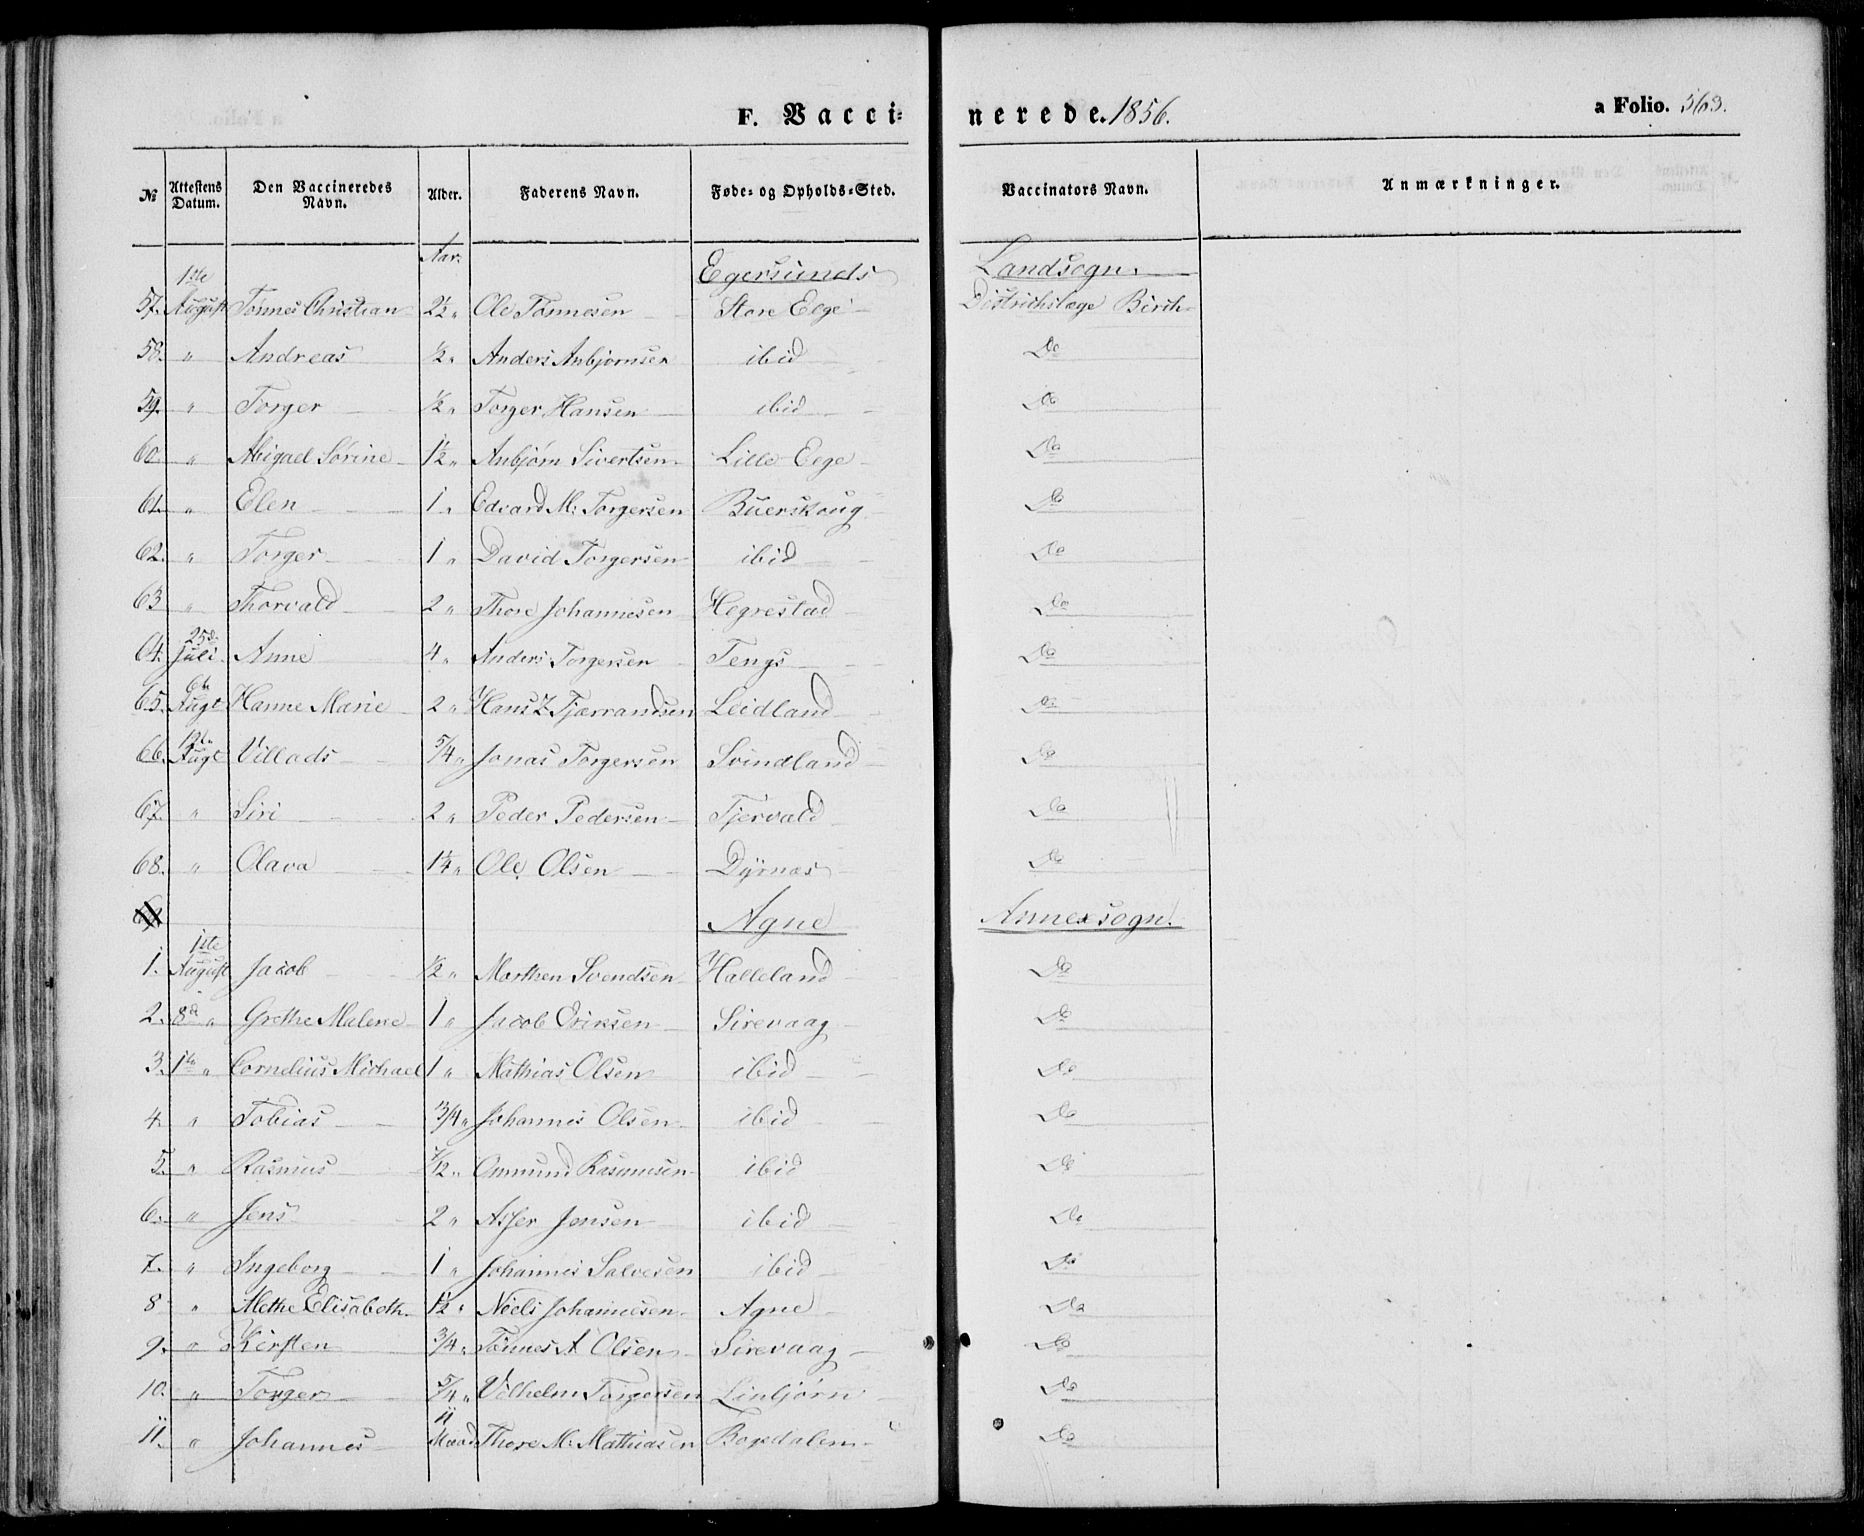 F. Vaccinerede. 1856. a Folio. 563.
№ Attestens Datum. Den Vaccineredes Navn. Alder. Faderens Navn. Føde- og Opholds-Sted. Vaccinators Navn. Anmærkninger.
Aar. Egersunds Landsogn.
57. 1ste August Tønnes Christian 2½ " Ole Tønnesen Store Eege Districtslæge Birch
58. " Andreas ½ " Anders Anbjørnsen ibid Do
59. " Torger ½ " Torger Hansen ibid Do
60. " Abigael Sørine 1½ " Anbjørn Sivertsen Lille Eege Do
61. " Elen 1 " Edvard M: Torgersen Buerskoug Do
62. " Torger 1 " David Torgersen ibid Do
63 " Thorvald 2 " Thore Johannesen Hegrestad Do
64. 25de Juli Anne 4 " Anders Torgersen Tengs Do
65. 6te Augt Hanne Marie 2 " Hans Z Tjærrandsen Leidland Do
66. Augt Villads 5/4 " Jonas Torgersen Svindland Do
67. " Siri 2 " Peder Pedersen Tjervald Do
68. " Olava 1¼ " Ole Olsen Dyrnæs Do
69 Agne Annexsogn.
1. 1ste August Jacob ½ " Morthen Svendsen Halleland Do
2. 8de " Grethe Malene 1 " Jacob Eriksen Sirevaag Do
3. 1te " Cornelius Michael 1 " Mathias Olsen ibid Do
4. " Tobias 3/4 " Johannes Olsen ibid Do
5. " Rasmus 7/12 " Ommund Rasmusen ibid Do
6. " Jens 2 " Asser Jensen ibid Do
7. " Ingeborg 1 " Johannes Salvesen ibid Do
8 " Methe Elisabeth. 1½ " Neels Johannesen Agne Do
9. " Kirsten 3/4 " Tønnes A Olsen Sirevaag Do
10. " Torger 5/4 " Vilhelm Torgersen Linbjørn Do
11. " Johannes 11 Maad Thore M: Mathiasen Bogedalen Do